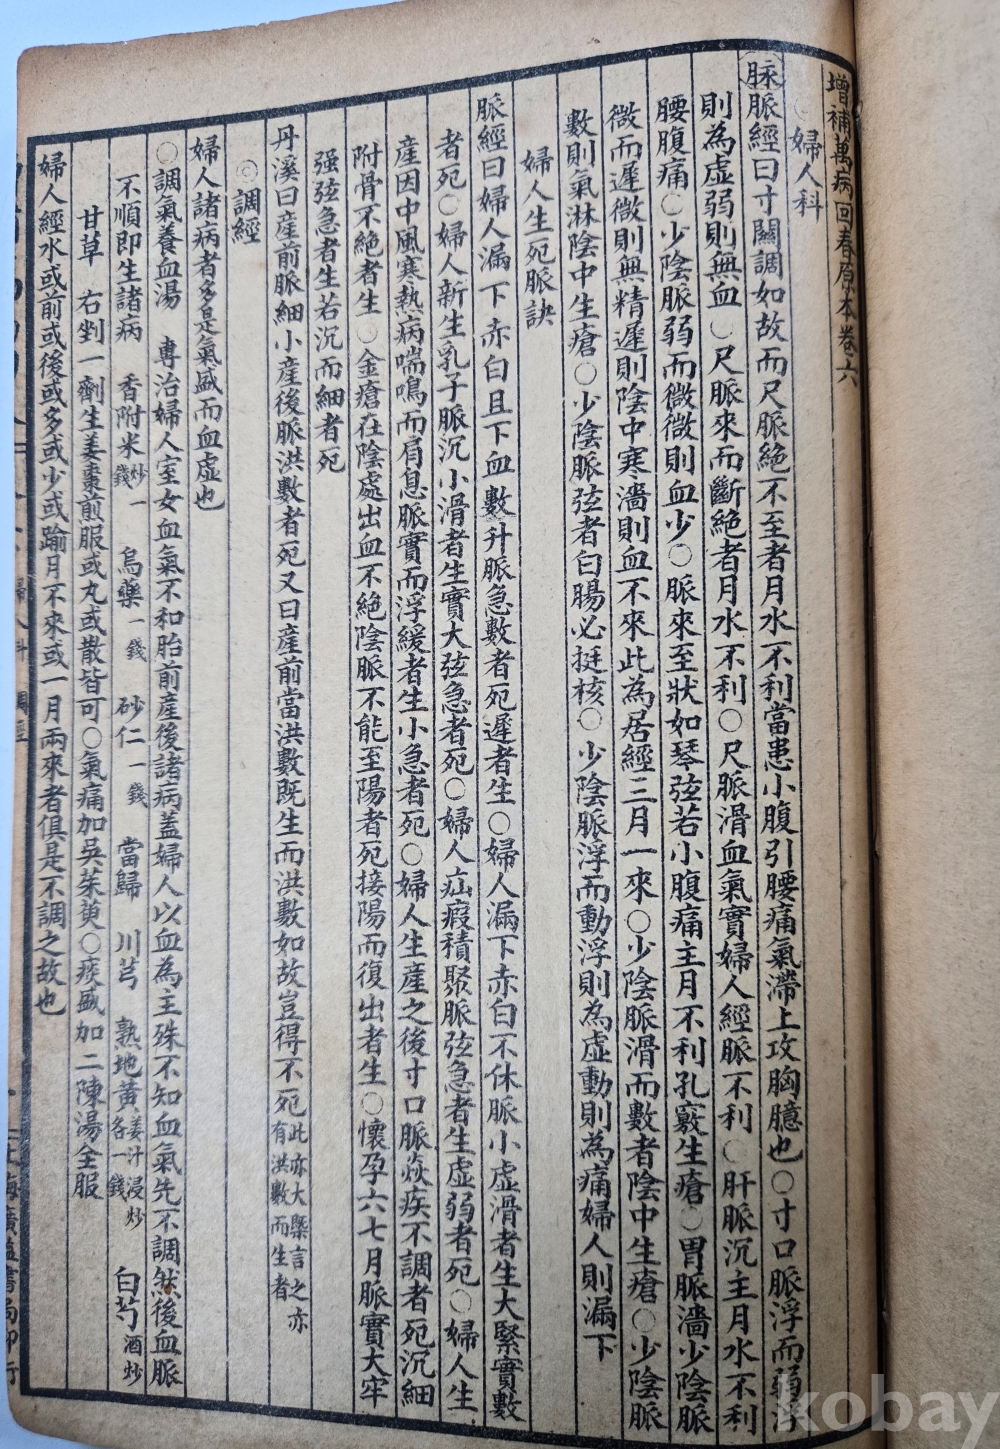 增補萬病回春原本卷六
○婦人科
脉脈經曰寸關調如故而尺脈絕不至者月水不利當患小腹引腰痛氣滯上攻胸臆也○寸口脈浮而弱浮
則為虛弱則無血○尺脈來而斷絕者月水不利○尺脈滑血氣實婦人經脈不利○肝脈沉主月水不利
腰腹痛○少陰脈弱而微微則血少○脈來至狀如琴弦若小腹痛主月不利孔竅生瘡○胃脈濇少陰脈
微而遲微則無精遲則陰中寒濇則血不來此為居經三月一來○少陰脈滑而數者陰中生瘡○少陰脈
數則氣淋陰中生瘡○少陰脈弦者白腸必挺核○少陰脈浮而動浮則為虛動則為痛婦人則漏下
婦人生死脈訣
脈經曰婦人漏下赤白且下血數升脈急數者死遲者生○婦人漏下赤白不休脈小虛滑者生大緊實數
者死○婦人新生乳子脈沉小滑者生實大弦急者死○婦人疝瘕積聚脈弦急者生虛弱者死○婦人生
產因中風寒熱病喘鳴而肩息脈實而浮緩者生小急者死○婦人生產之後寸口脈焱疾不調者死沉細
附骨不絕者生○金瘡在陰處出血不絕陰脈不能至陽者死接陽而復出者生○懷孕六七月脈實大牢
强弦急者生若沉而細者死
丹溪曰產前脈細小產後脈洪數者死又曰產前當洪數既生而洪數如故豈得不死此亦大槩言之亦有洪數而生者
◎調經
婦人諸病者多是氣盛而血虛也
○調氣養血湯 專治婦人室女血氣不和胎前產後諸病蓋婦人以血為主殊不知血氣先不調然後血脈
不順即生諸病 香附米炒一錢 烏藥一錢 砂仁一錢 當歸 川芎 熟地黃姜汁浸炒各一錢 白芍酒炒
甘草 右剉一劑生姜棗煎服或丸或散皆可○氣痛加吳茱萸○痰盛加二陳湯全服
婦人經水或前或後或多或少或踰月不來或一月兩來者俱是不調之故也
婦人科 調經
上海廣益書局印行
xobay